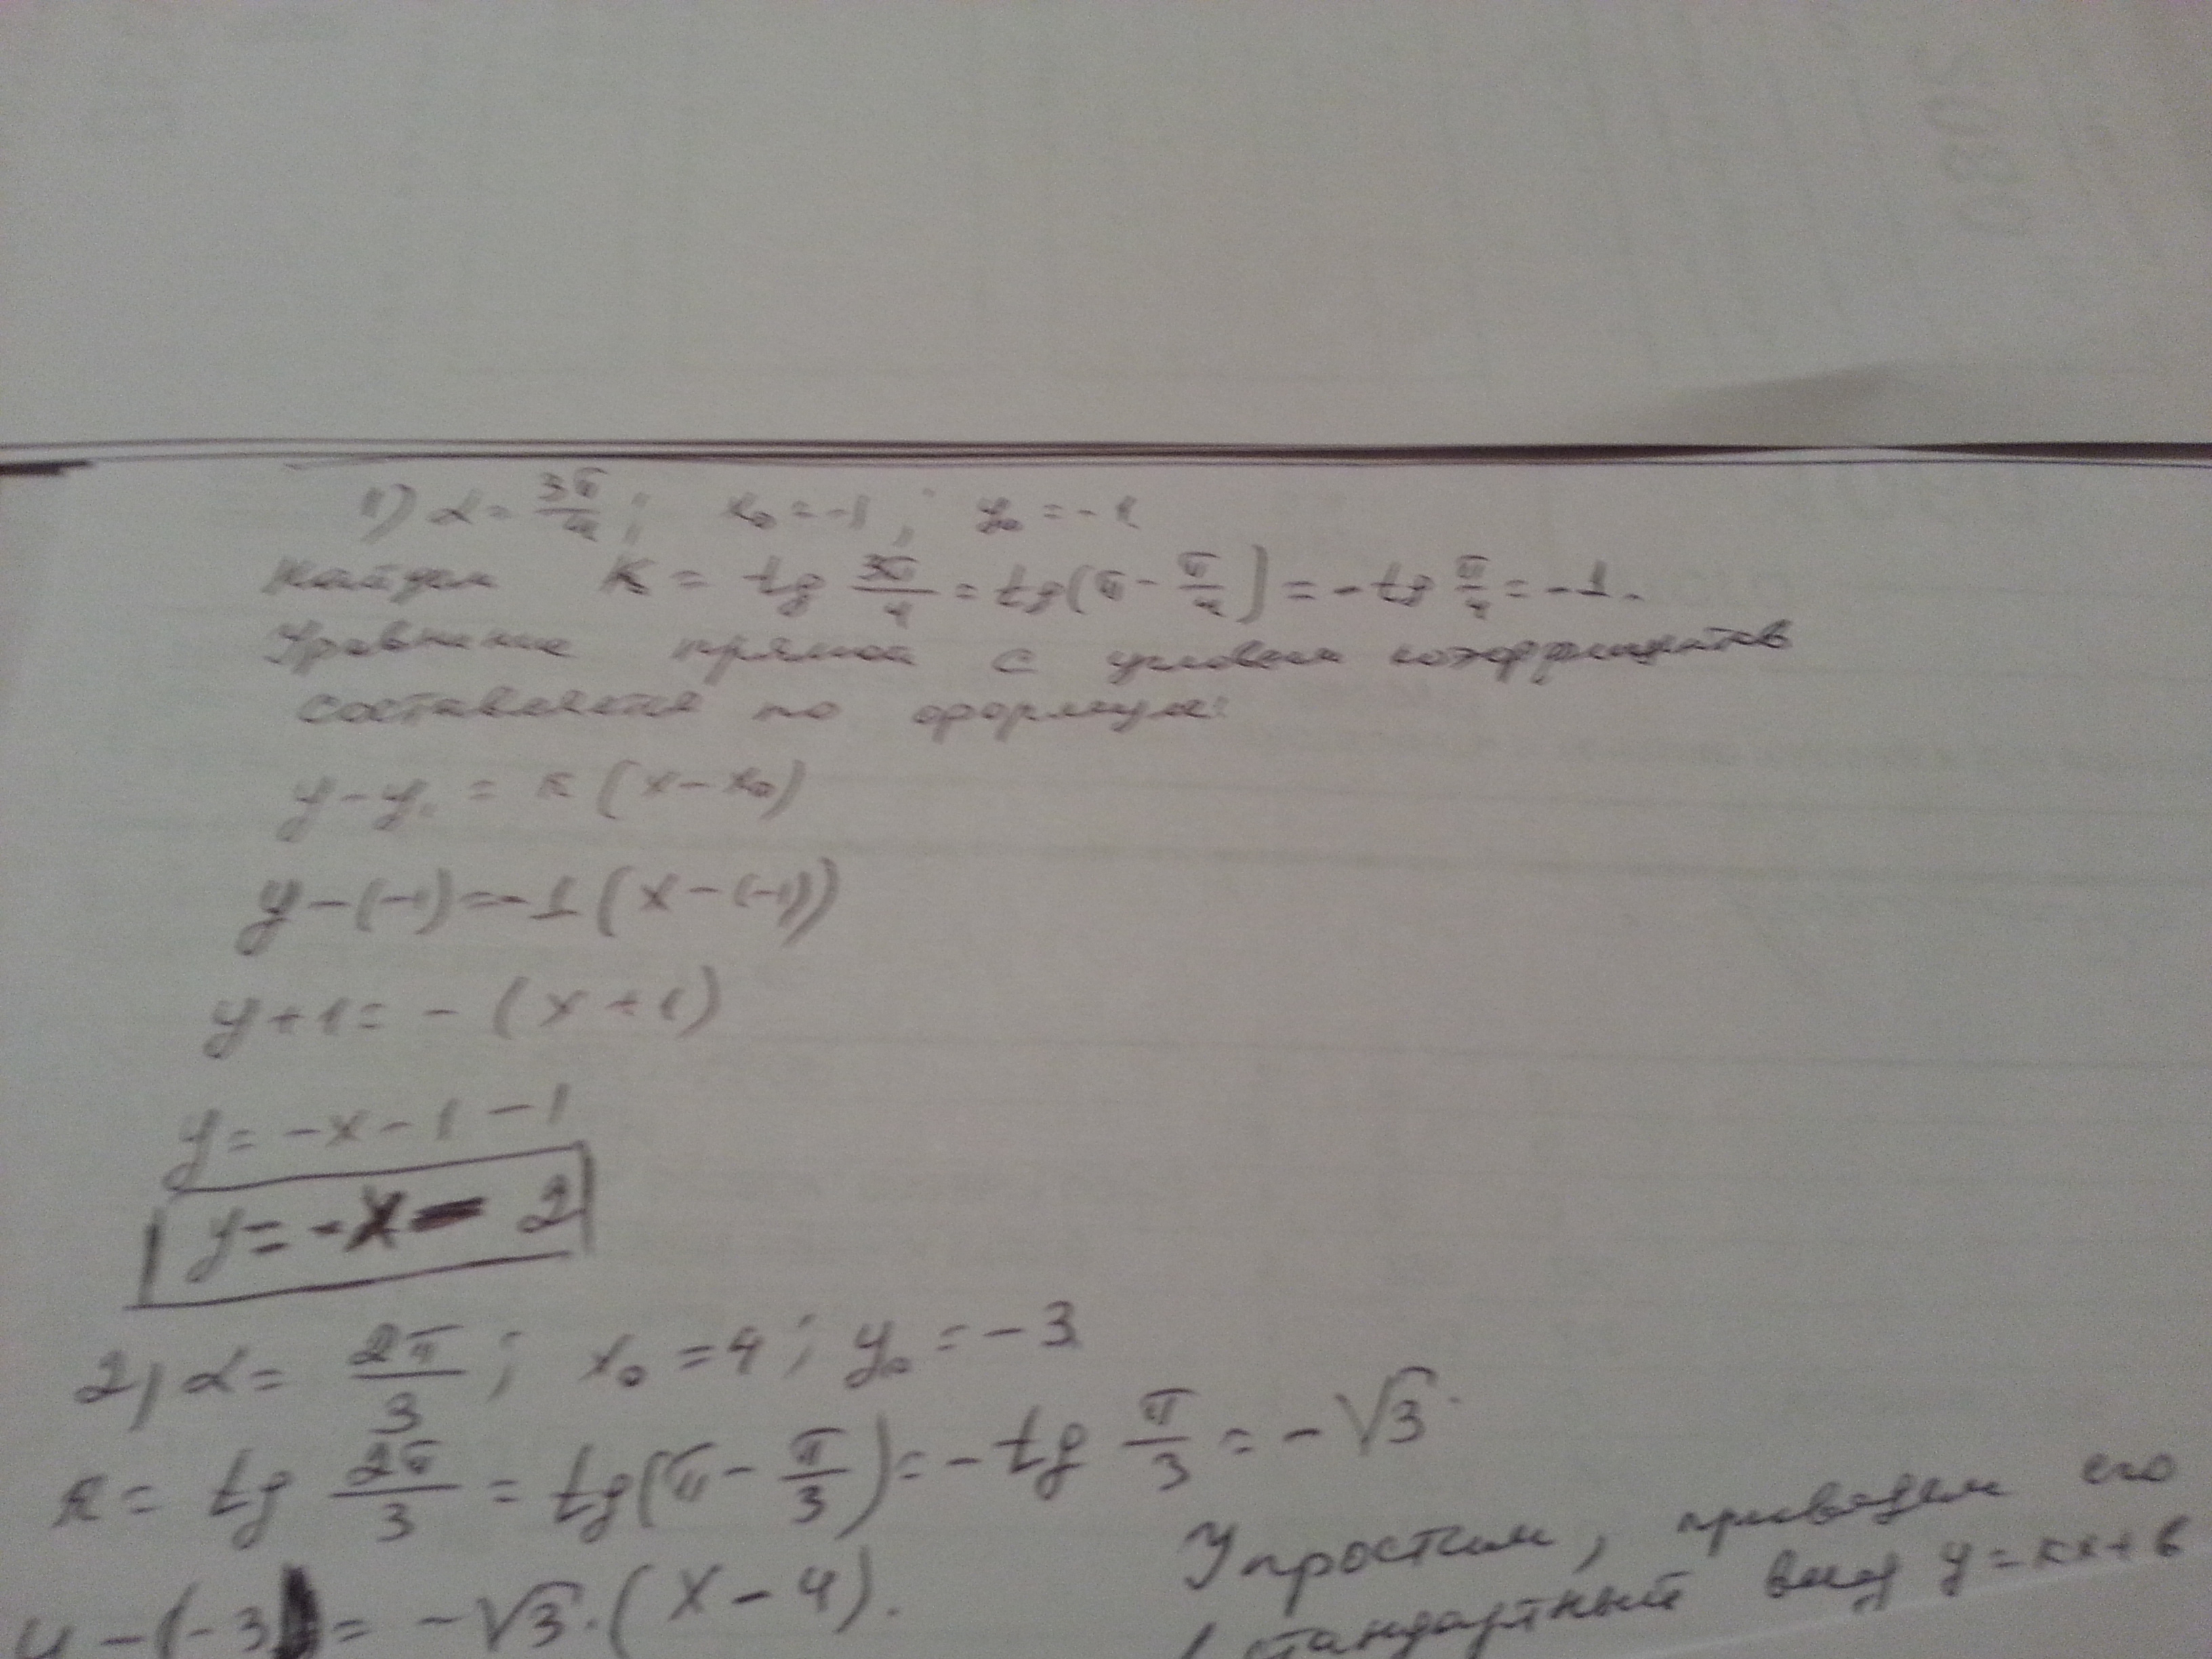 1) α = 3π/4 ; x₀ = -1 ; y₀ = -1
Найдем K = tg 3π/4 = tg(π - π/4) = - tg π/4 = -1.
Уравнение прямой с угловым коэффициентов
составляется по формуле:
y - y₀ = к (x - x₀)
y - (-1) = -1 (x - (-1))
y + 1 = - (x + 1)
y = -x - 1 - 1
y = -x - 2
2) α = 2π/3 ; x₀ = 4 ; y₀ = -3
к = tg 2π/3 = tg(π - π/3) = - tg π/3 = -√3.
y - (-3) = -√3 · (x - 4).
Упростим, приведем его
стандартный вид y = кx + b